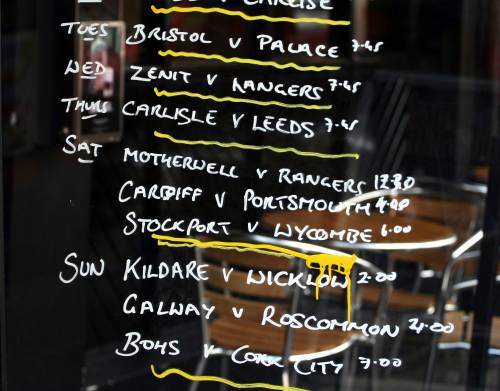 CARLISLE
TUES BRISTOL V PALACE 7.45
WED ZENIT V RANGERS 7.45
THURS CARLISLE V LEEDS 7.45
SAT MOTHERWELL V RANGERS 12.30
CARDIFF V PORTSMOUTH 4.00
STOCKPORT V WYCOMBE 6.00
SUN KILDARE V WICKLOW 2.00
GALWAY V ROSCOMMON 4.00
BOHS V CORK CITY 7.00